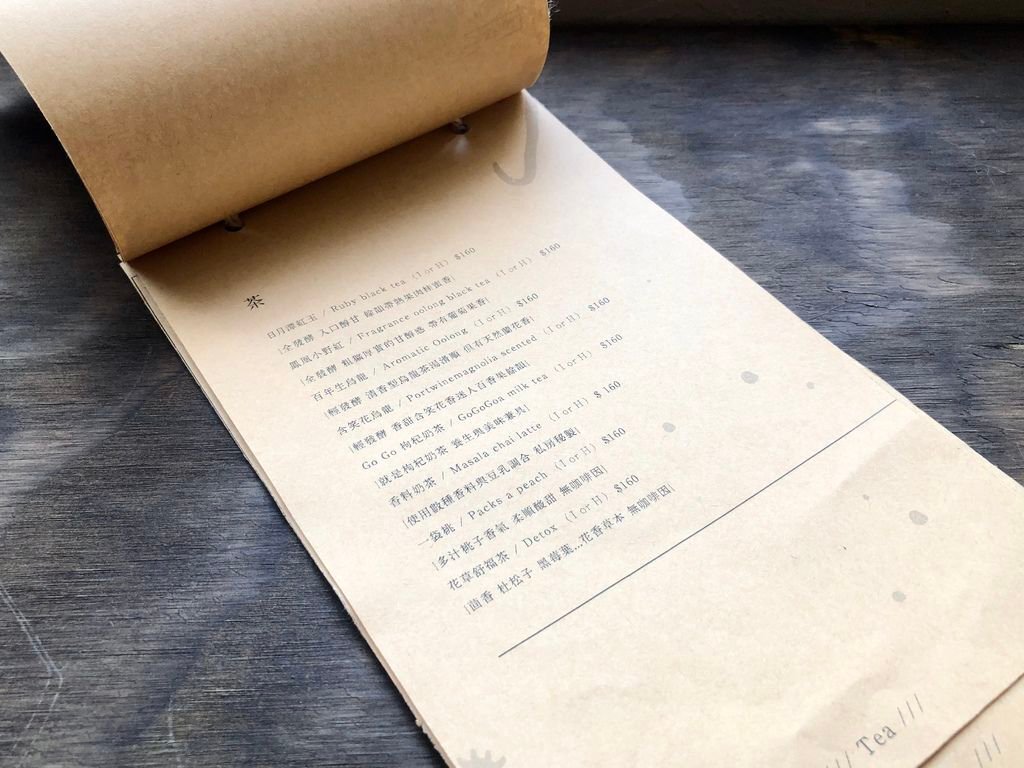 茶
日月潭紅玉 / Ruby black tea (I or H) $160
|全發酵 入口醇甘 餘韻帶熟果肉桂蜜香|
鳳凰小野紅 / Fragrance oolong black tea (I or H) $160
|全發酵 粗獷厚實的甘醇感 帶有葡萄果香|
百年生烏龍 / Aromatic Oolong (I or H) $160
|輕發酵 清香型烏龍茶湯清順 但有天然蘭花香|
含笑花烏龍 / Portwinemagnolia scented (I or H) $160
|輕發酵 香甜含笑花香迷人百香果餘韻|
Go Go 枸杞奶茶 / GoGoGoa milk tea (I or H) $160
|就是枸杞奶茶 養生與美味兼具|
香料奶茶 / Masala chai latte (I or H) $ 160
|使用數種香料與豆乳調合 私房秘製|
一袋桃 / Packs a peach (I or H) $160
|多汁桃子香氣 柔順酸甜 無咖啡因|
花草舒福茶 / Detox (I or H) $160
|茴香 杜松子 黑莓葉...花香草本 無咖啡因|
/// Tea ///
///